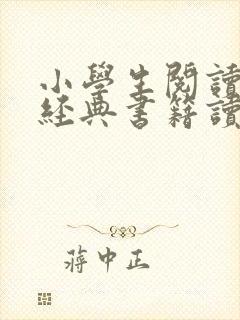 小學生閱讀
經典書籍讀
蔣中正